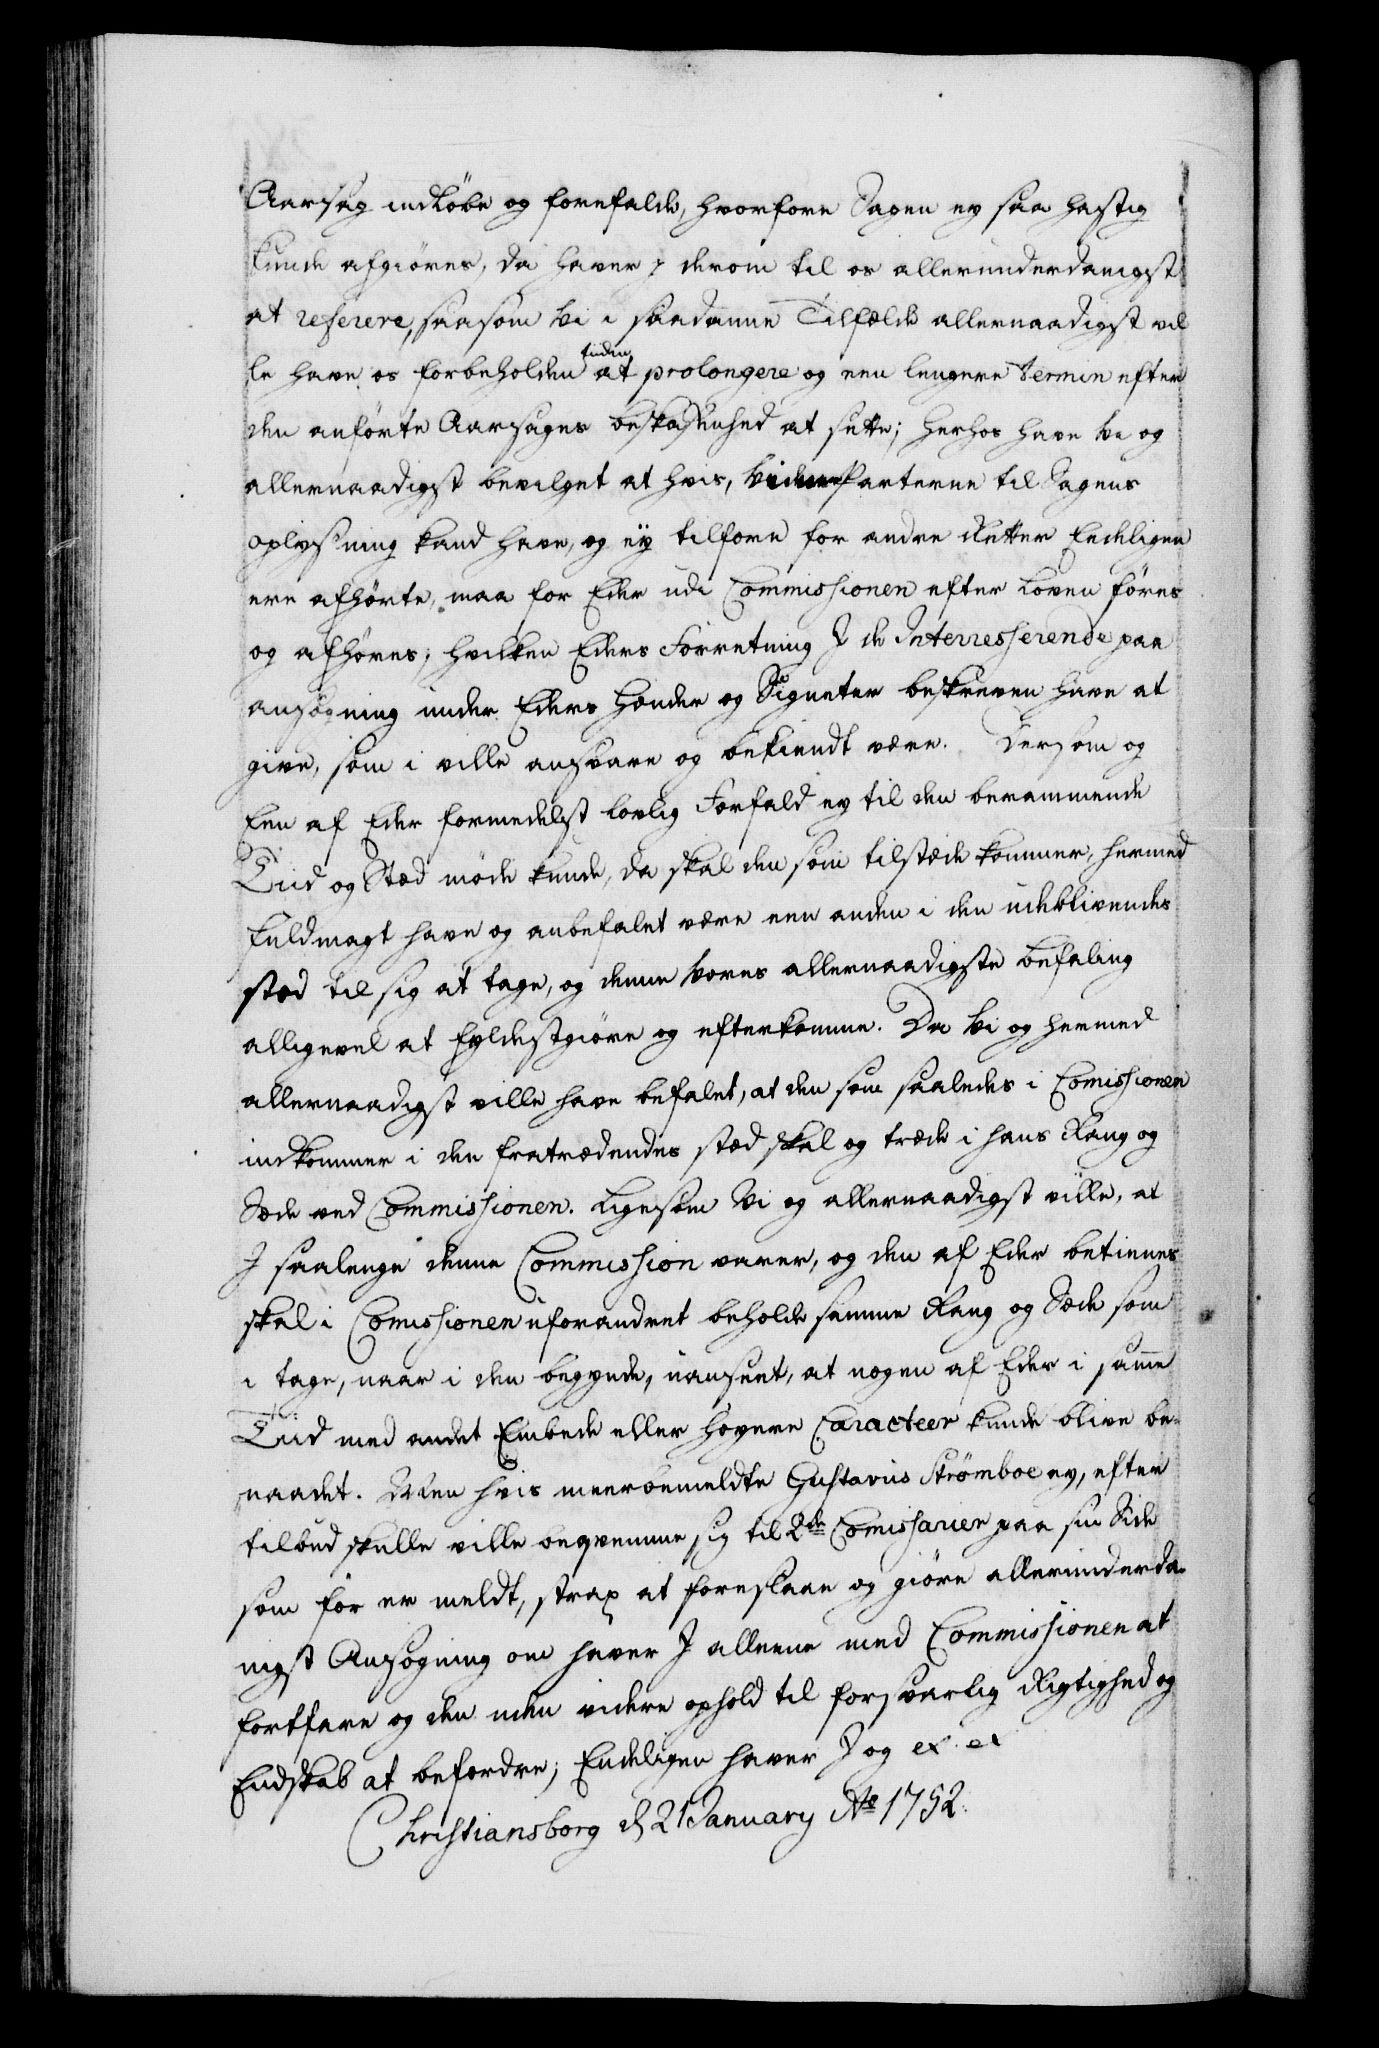 Aarsag indløbe og forefalde, hvorfore Sagen ey saa hastig
kunde afgiøres, da haver I derom til os allerunderdanigst
at referere, saasom Vi i saadanne Tilfælde allernaadigst vil
le have os forbeholden tiiden at prolongere og een lengere termin efter
den anførte Aarsages beskaffenhed at sette; herhos have Vi og
allernaadigst bevilget at hvis, Vidner Parterne til Sagens
oplysning kand have, og ey tilforn for andre Retter Endeligen
ere afhørte, maa for Eder udi Commissionen efter Loven føres
og afhøres; hvilken Eders Forretning I de Interresserende paa
ansøgning under Eders Hænder og Signeter beskreven have at
give, som i ville ansvare og bekiendt være. Dersom og
Een af Eder formedelst lovlig Forfald ey til den berammende
Tiid og Stæd møde kunde, da skal den som tilstæde kommer, hermed
fuldmagt have og anbefalet være een anden i den udeblivendes
stæd til sig at tage, og denne Vores allernaadigste befaling
alligevel at fyldestgiøre og efterkomme. Da Vi og hermed
allernaadigst ville have befalet, at den som saaledes i Comissionen
indkommer i den fratrædendes stæd skal og træde i hans Rang og
Sæde ved Commissionen. Ligesom Vi og allernaadigst ville, at
I saalenge denne Commission varer, og den af Eder betienes
skal i Comissionen uforandret beholde samme Rang og Sæde som
i tage, naar i den begynde, uanseet, at nogen af Eder i samme
Tiid med andet Embede eller høyere Caracteer kunde blive be-
naadet. Men hvis meerbemeldte Gustavus Strømboe ey, efter
tilbud skulle ville beqvemme sig til 2de Comissarier paa sin Side
som før er meldt, strax at foreslaae og giøre allerunderda-
nigst Ansøgning om haver I alleene med Commissionen at
fortfare og den uden videre ophold til forsvarlig Rigtighed og
Endskab at befordre; Endeligen haver I og ex ex
Christiansborg d 21 January Ao 1752.